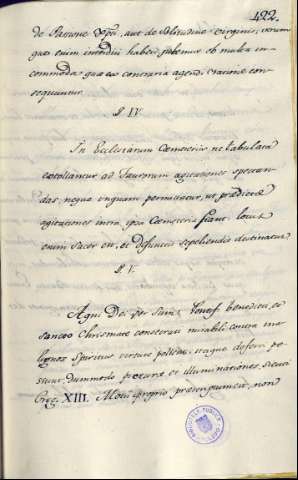 122.
de Passione Xpti, aut de Solitudine Virginis, utrum
que enim intendivi haberi jubemur ob multa in-
commoda quæ ex contraria agendi ratione con-
sequuntur.
§. IV.
In Ecclesiarum Cœmeteriis ne tabulata
extollantur ad Taurorum agitationes spectan-
das, neque unquam permittatur, ut prædictæ
agitationes intra ipsa Cœmeteria fiant: locus
enim sacer est, et defunctis sepeliendis destinatus
§. V.
Agni Dei per Summ. Pontif. benedicti, et
sancto Chrismate consecrati mirabili contra ma-
lignos Spiritus virtute pollent: itaque deferri po-
ssunt, dummodo picturæ et illuminationes, sicuti
Greg. XIII. Motu proprio præsumpserit, non